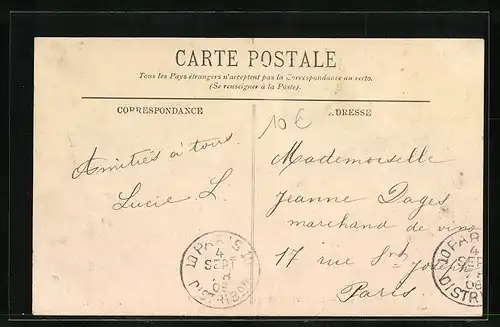 CARTE POSTALE
Tous les Pays étrangers n'acceptent pas la Correspondance au recto.
(Se renseigner à la Poste).
CORRESPONDANCE
ADRESSE
10€
Amitiés à tous.
Lucie L.
Mademoiselle
Jeanne Dages
marchand de vins
17 rue St Joseph
Paris.
PARIS
4
SEPT
08
DISTRIBON
PAR
4
SEP
08
DISTR